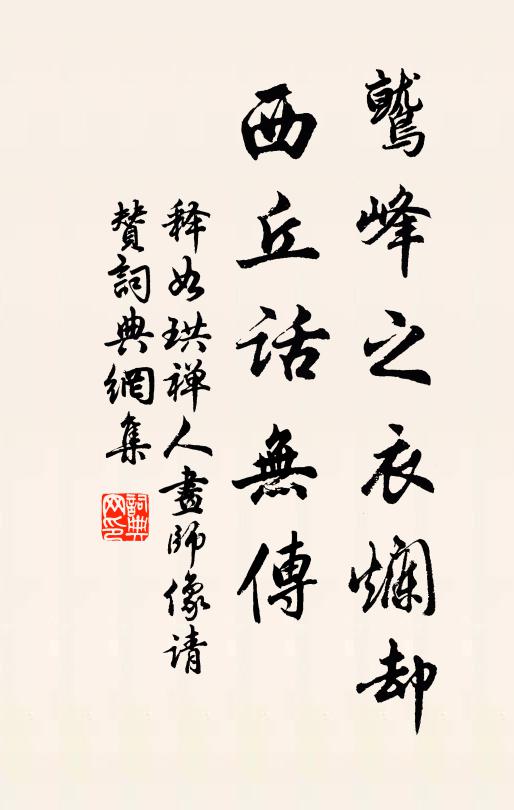 鷲峰之衣爛却
西丘話無傳
释如珙禅人畫師像请
贊詞典網集
詞典网印